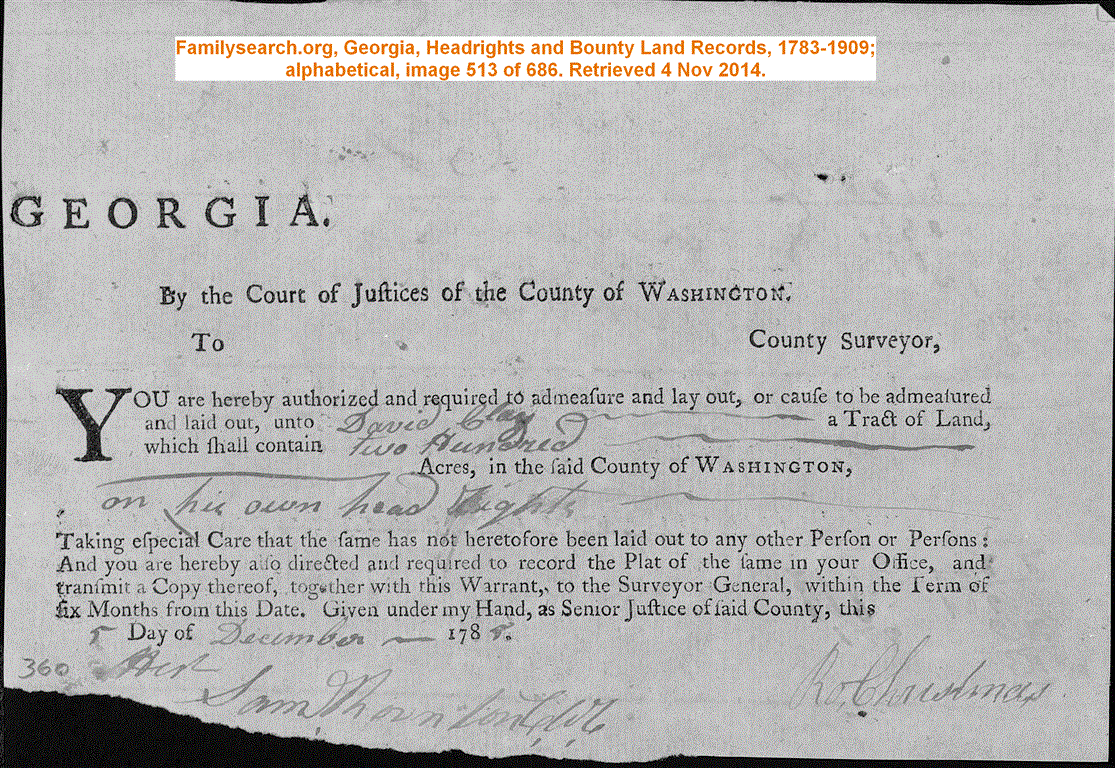 Familysearch.org, Georgia, Headrights and Bounty Land Records, 1783-1909;
alphabetical, image 513 of 686. Retrieved 4 Nov 2014.
GEORGIA.
By the Court of Juſtices of the County of WASHINGTON.
To County Surveyor,
YOU are hereby authorized and required to admeaſure and lay out, or cauſe to be admeaſured
and laid out, unto David Clay a Tract of Land,
which ſhall contain two Hundred
Acres, in the ſaid County of WASHINGTON,
on his own head Rights
Taking eſpecial Care that the ſame has not heretofore been laid out to any other Perſon or Perſons:
And you are hereby alſo directed and required to record the Plat of the ſame in your Office, and
tranſmit a Copy thereof, together with this Warrant, to the Surveyor General, within the Term of
ſix Months from this Date. Given under my Hand, as Senior Juſtice of ſaid County, this
5 Day of December 1785.
360 Attest
Sam Thornton
Ro. Christmas